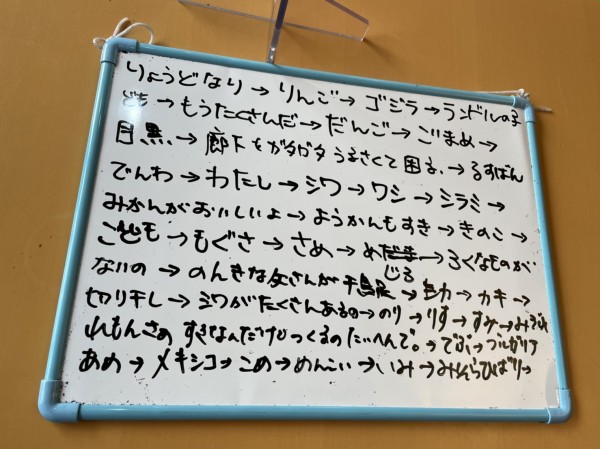 りょうどなり→りんご→ゴジラ→ランドルの子
どち→もうたくさんだ→だんご→ごまめ→
目黒→廊下をガタガタうるさくて困る、→るすばん
でんわ→わたし→シワ→ワシ→シラミ→
みかんがおいしいよ→ようかんもすき→きのこ→
こども→もぐさ→さめ→めじろ→ろくなものが
ないの→のんきな父さんが千鳥足→カキ→
切り干し→シワがたくさんあるの→のり→りす→すみ→みぞれ
れもんさめ すきなんだけどつくるのたいへんで。→でぶ→ブルガリア
あめ→メキシコ→こめ→めんこい→いみ→みそらひばり→